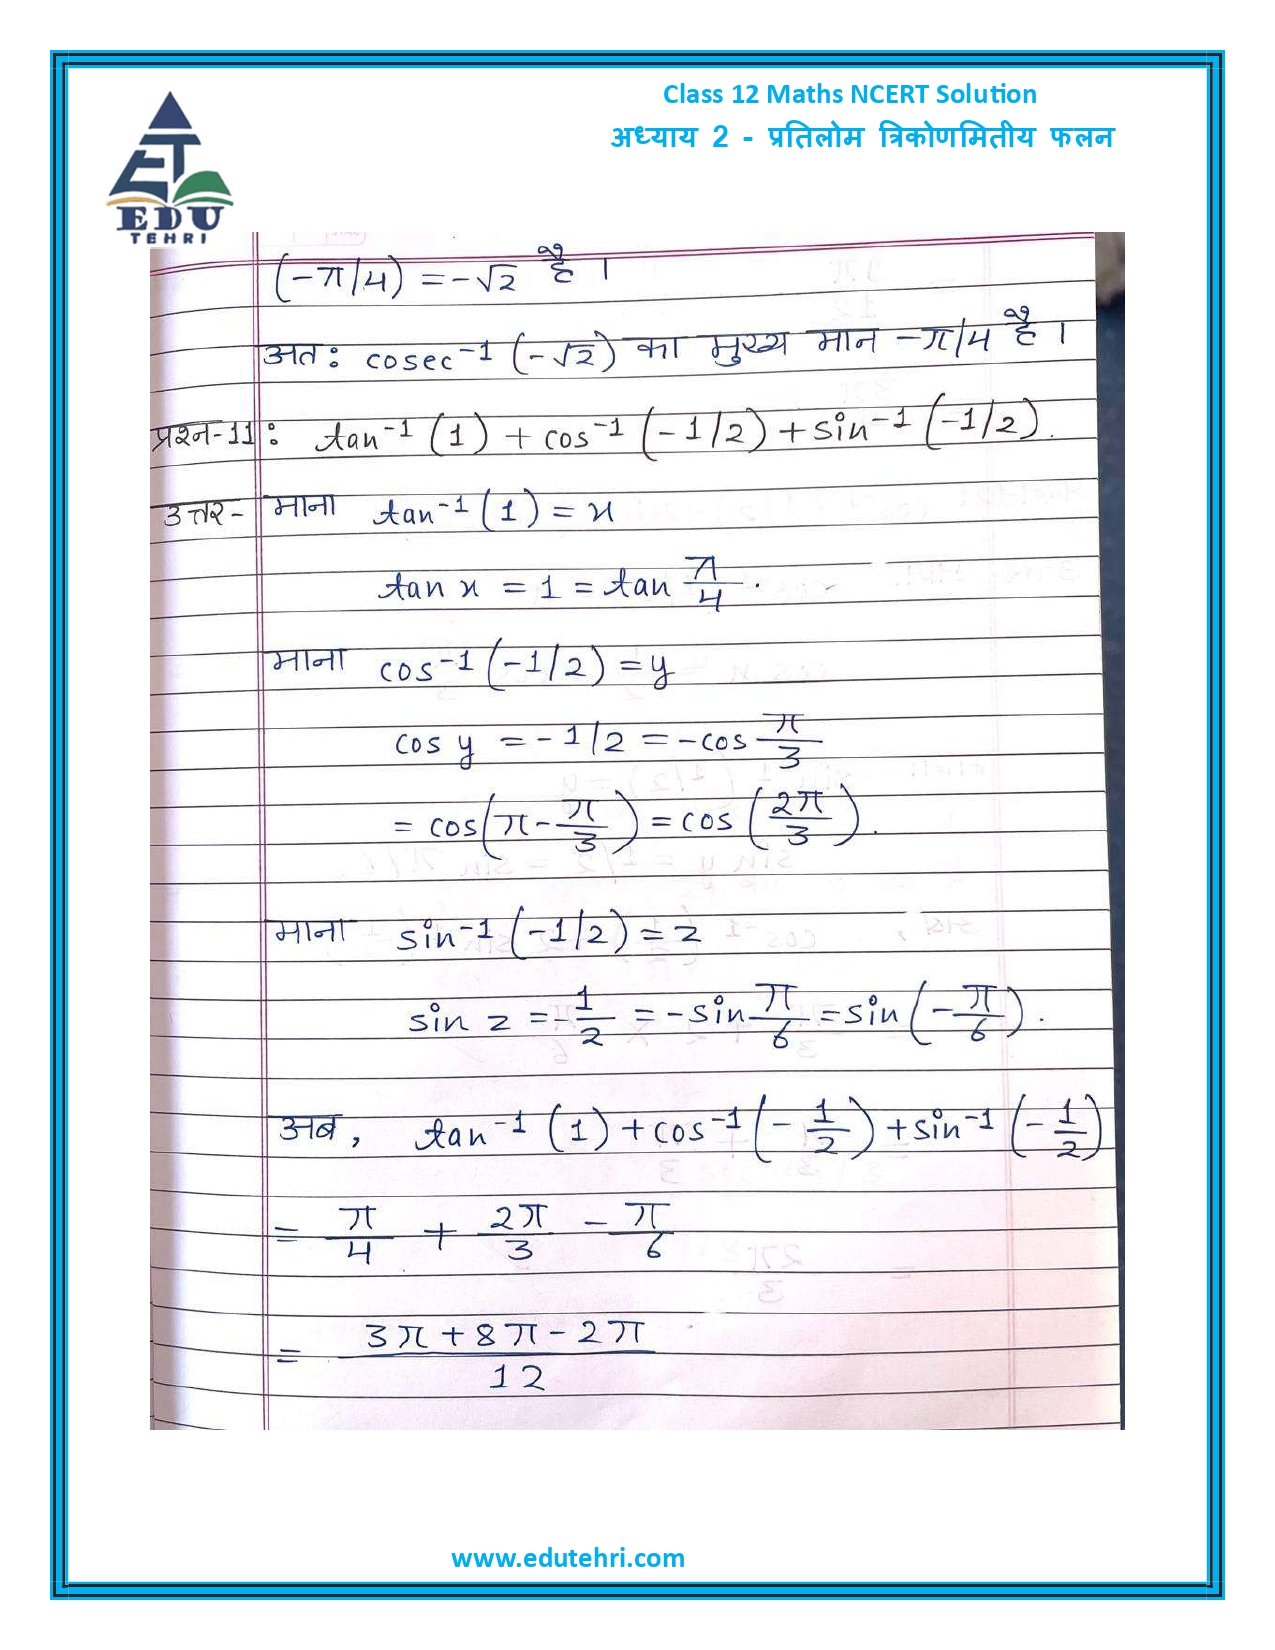 Class 12 Maths NCERT Solution
अध्याय 2 - प्रतिलोम त्रिकोणमितीय फलन
EDU
TEHRI
(-π/4) = -√2 है ।
अतः cosec⁻¹ (-√2) का मुख्य मान -π/4 है ।
प्रश्न-11: tan⁻¹ (1) + cos⁻¹ (-1/2) + sin⁻¹ (-1/2).
उत्तर- माना tan⁻¹ (1) = x
tan x = 1 = tan π/4.
माना cos⁻¹ (-1/2) = y
cos y = -1/2 = -cos π/3
= cos(π - π/3) = cos (2π/3).
माना sin⁻¹ (-1/2) = z
sin z = -1/2 = -sin π/6 = sin (-π/6).
अब, tan⁻¹ (1) + cos⁻¹ (-1/2) + sin⁻¹ (-1/2)
= π/4 + 2π/3 - π/6
= 3π + 8π - 2π / 12
www.edutehri.com